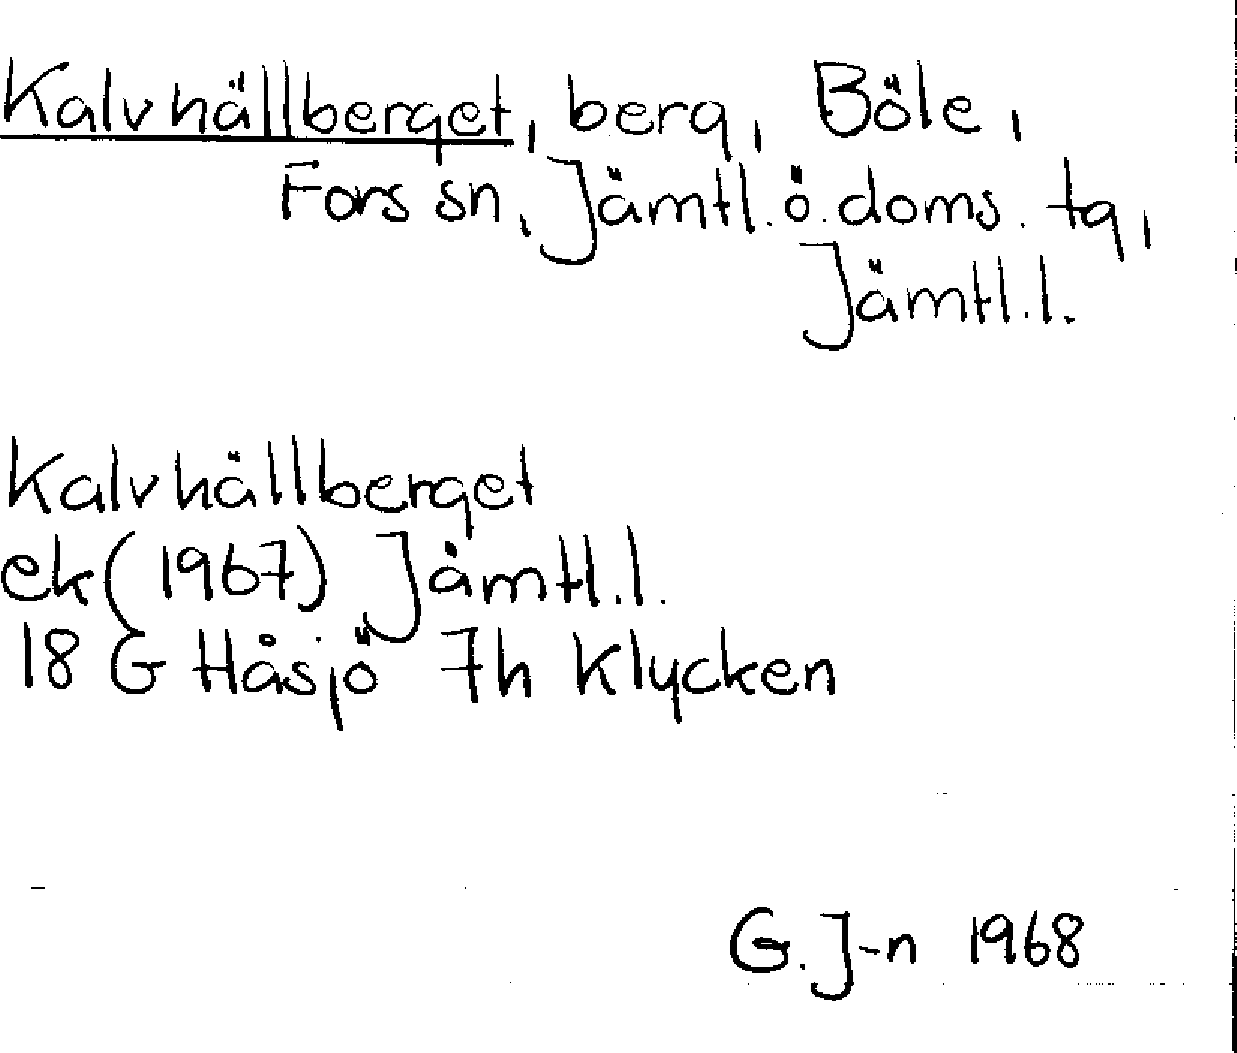 Kalvhällberget, berg, Böle,
Fors sn, Jämtl.ö.doms.tg,
Jämtl.l.
Kalvhällberget
ek(1967) Jämtl.l.
18 G Håsjö 7h Klycken
G.J-n 1968